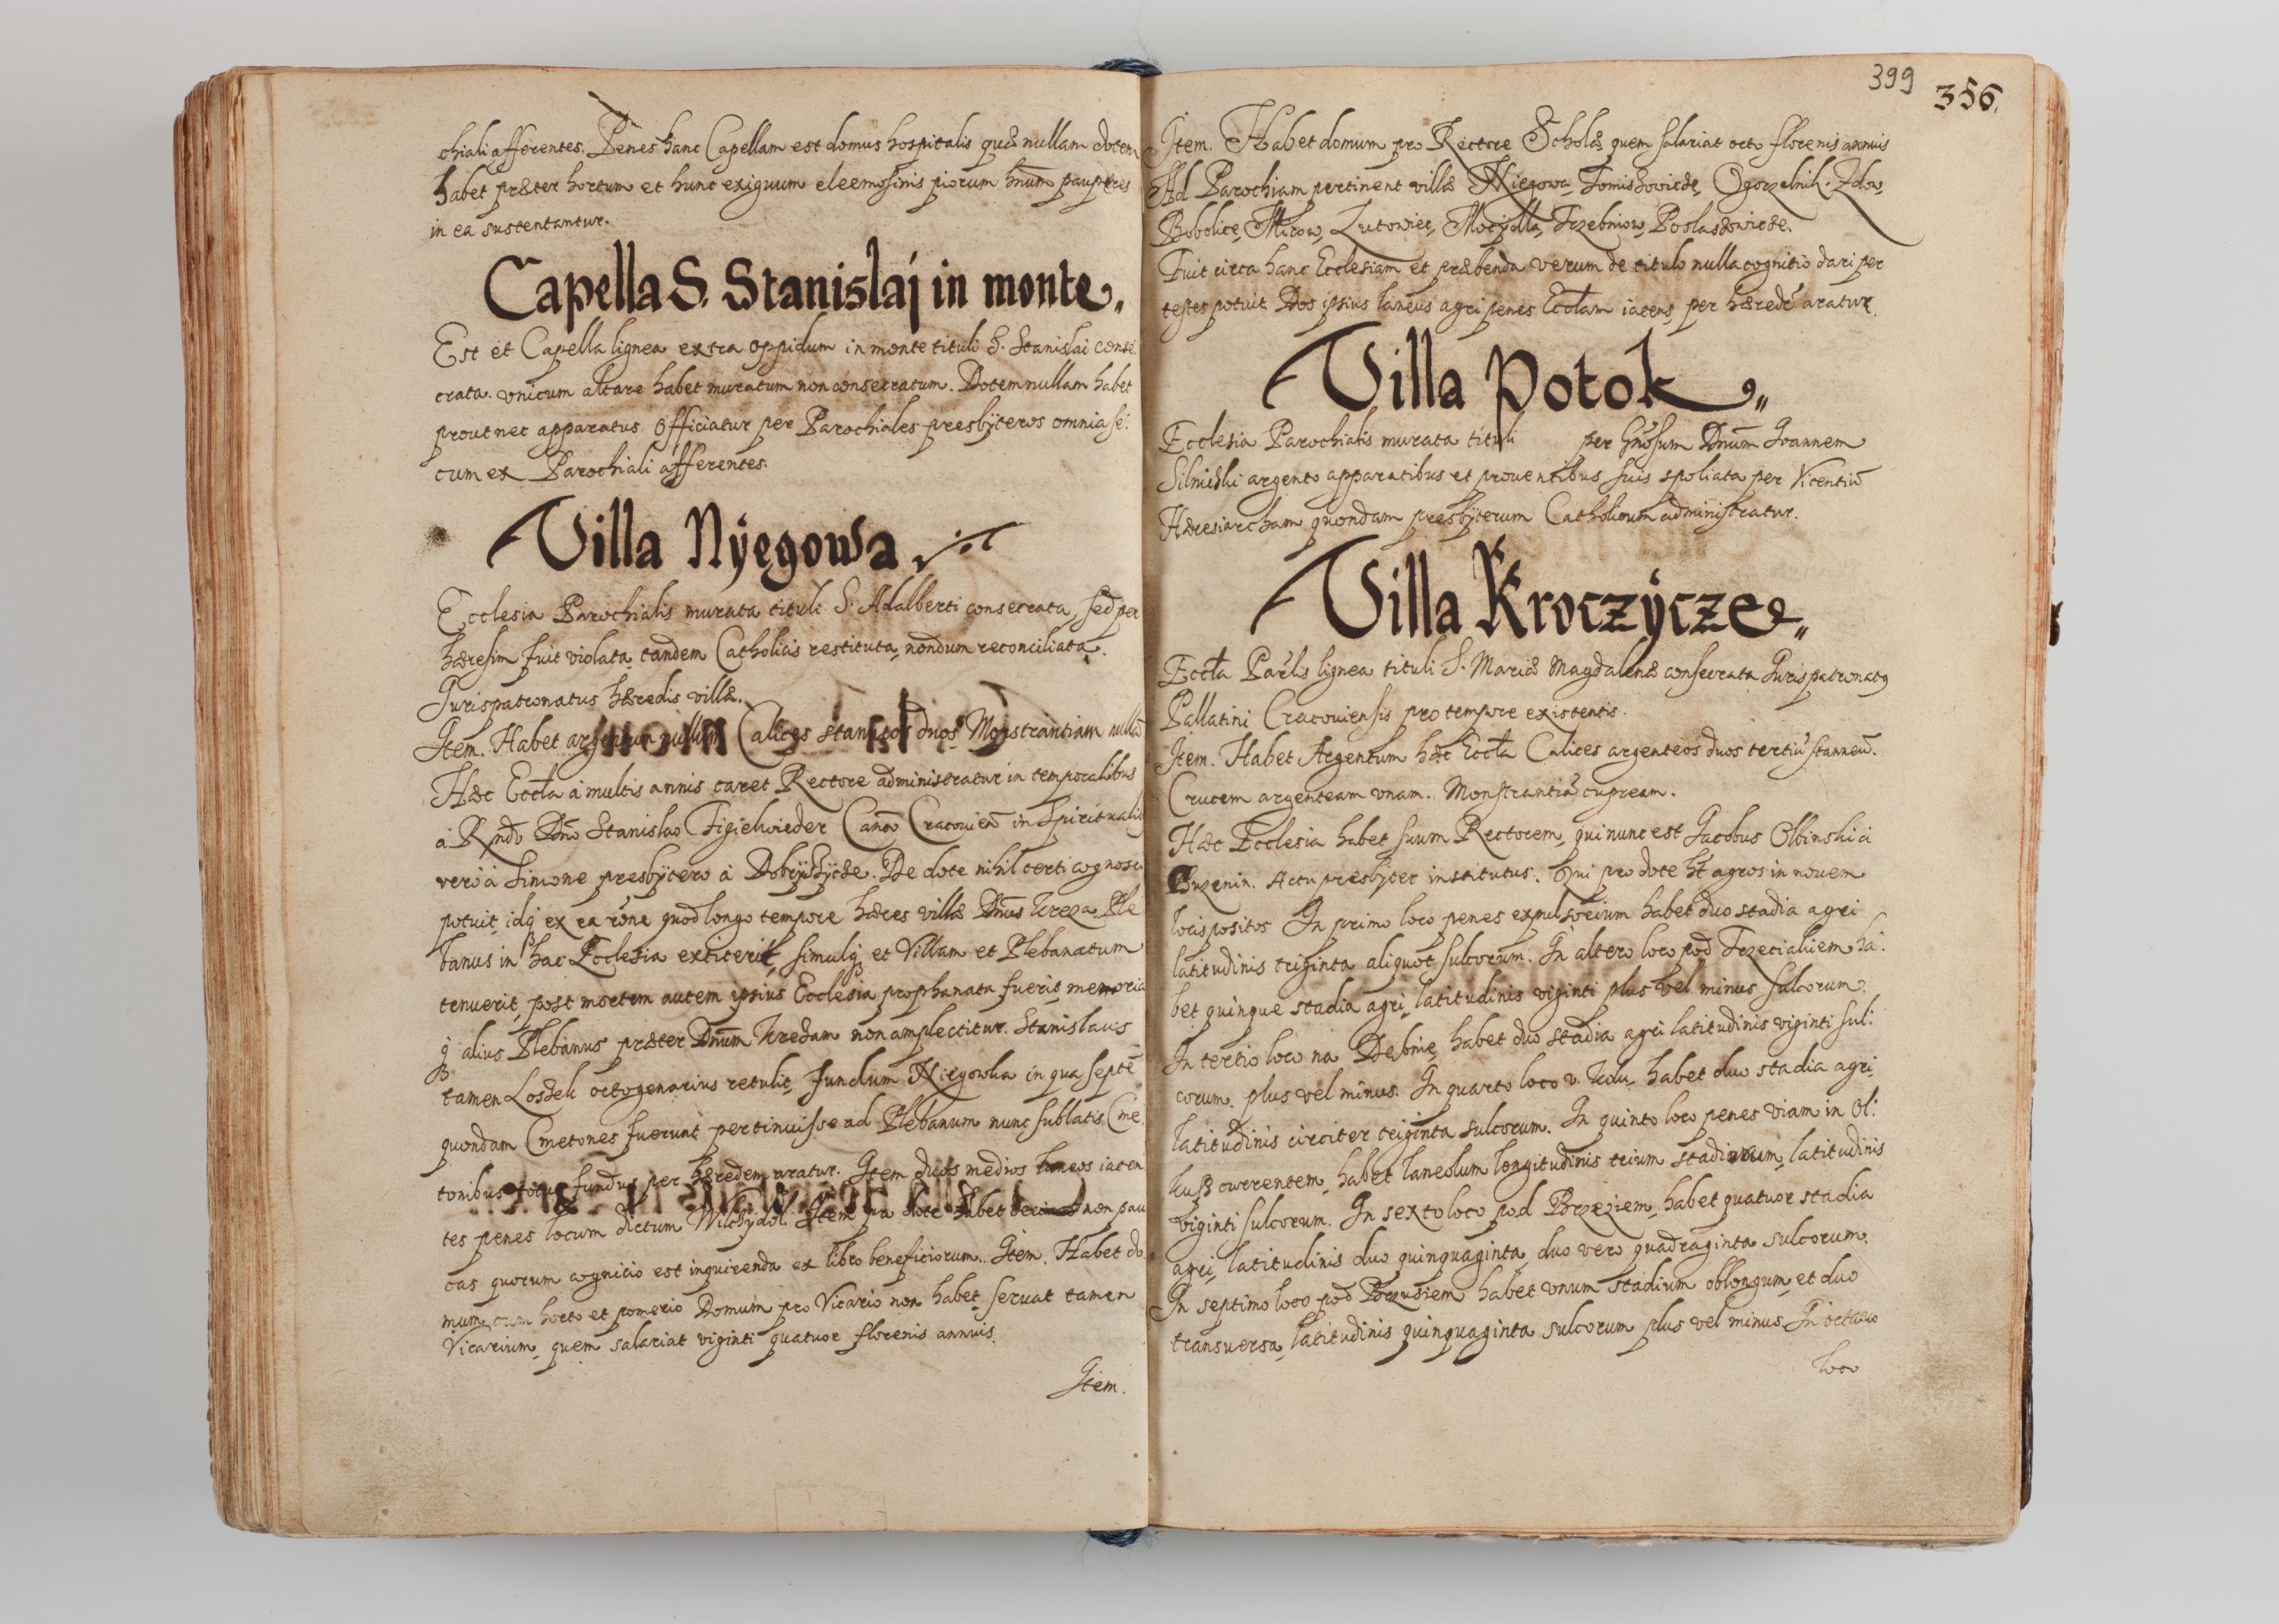 chiali afferentes. Penes hanc Capellam est domus hospitalis quæ nullam dotem
habet præter hortum et hunc exiguum eleemosinis piorum hm̃um pauperes
in ea sustentantur.
Capella S. Stanislaj in monte
Est et Capella lignea extra oppidum in monte tituli S. Stanislai conse
crata. vnicum altare habet muratum non consecratum. Dotem nullam habet
prout nec apparatus Officiatur per Parochiales presbÿteros omnia se:
cum ex Parochiali afferentes.
Villa Nÿęgowa
Ecclesia Parochialis murata tituli S. Adalberti consecrata, sed per
hæresim fuit violata tandem Catholicis restituta, nondum reconciliata.
Jurispatronatus hæredis villæ.
Item. Habet argentum nullum Calices stanneos duos Monstrantiam nullã
Hæc Eccl̃a à multis annis caret Rectore administratur in temporalibus
à Rndo Dno Stanislao Figielwieder Cano Cracouieñ in spiritualib
vero à Simone presbÿtero à DobrÿszÿcZe. De dote nihil certi cognosci
potuit, idq ex ea rõne quod longo tempore hæres villæ Dnus Kreza Ple
banus in hac Ecclesia extiterit, simulq et Villam et Plebanatum
tenuerit, post mortem autem ipsius Ecclesia prophanata fuerit, memoria
q alius Plebanus præter Dnum Krezam non amplectitur. Stanislaus
tamen Loszek octogenarius retulit, fundum Niegowka in qua septẽ
quondam Cmetones fuerunt pertinuisse ad Plebanum nunc sublatis Cme
tonibus totus fundus per hæredem aratur. Item duos medios laneos iacen
tes penes locum dictum WilchÿdoL Item pro dote habet decimas non pau
cas quorum cognitio est inquirenda ex libro beneficiorum. Item. Habet do
mum cum horto et pomerio Domum pro Vicario non habet, seruat tamen
Vicarium, quem salariat viginti quatuor florenis annuis.
Item.
399
356.
Item. Habet domum pro Rectore Scholæ quem salariat octo florenis annuis
Ad Parochiam pertinent villæ Niegowa, Tomiszowicze, Ogorzelnik. Zdow,
Bobolice, Mirow, Lutowiec, Moczÿdla, Trzebniow, Postaszowicze.
Fuit circa hanc Ecclesiam et præbenda verum de titulo nulla cognitio dari per
testes potuit Dos ipsius laneus agri penes Eccl̃am iacens, per hæredẽ aratur.
Villa Potok
Ecclesia Parochialis murata tituli per Gnõsum Dnum Joannem
Silnicki argento apparatibus et prouentibus suis spoliata per Vicentiũ
Hæresiarcham quondam presbÿterum Catholicum administratur.
Villa Kroczÿcze
Eccl̃a Par̃lis lignea tituli S. Mariæ Magdalenæ consecrata Jurispatronatq
Pallatini Cracouiensis pro tempore existentis.
Item. Habet Argentum hæc Eccl̃a Calices argenteos duos tertiũ stanneũ.
Crucem argenteam vnam. Monstrantiã cupream.
Hæc Ecclesia habet suum Rectorem, qui nunc est Jacobus Olbinski à
Buzenin. Actu presbÿter institutus. Qui pro dote ht agros in nouem
locis positos In primo loco penes expulsorium habet duo stadia agri
latitudinis triginta aliquot sulcorum. In altero loco pod Trzecialiem ha:
bet quinque stadia agri, latitudinis viginti plus vel minus sulcorum.
In tertio loco na Dębnię habet duo stadia agri latitudinis viginti sul:
corum. plus vel minus. In quarto loco v. Kolu, habet duo stadia agri,
latitudinis circiter triginta sulcorum. In quinto loco penes viam in Ol:
kusz currentem, habet laneolum longitudinis trium stadiorum, latitudinis
viginti sulcorum. In sexto loco pod Brzeziem, habet quatuor stadia
agri, latitudinis duo quinquaginta, duo vero quadraginta sulcorum.
In septimo loco pod habet vnum stadium oblongum, et duo
transuersa, latitudinis quinquaginta sulcorum plus vel minus In octauo
loco